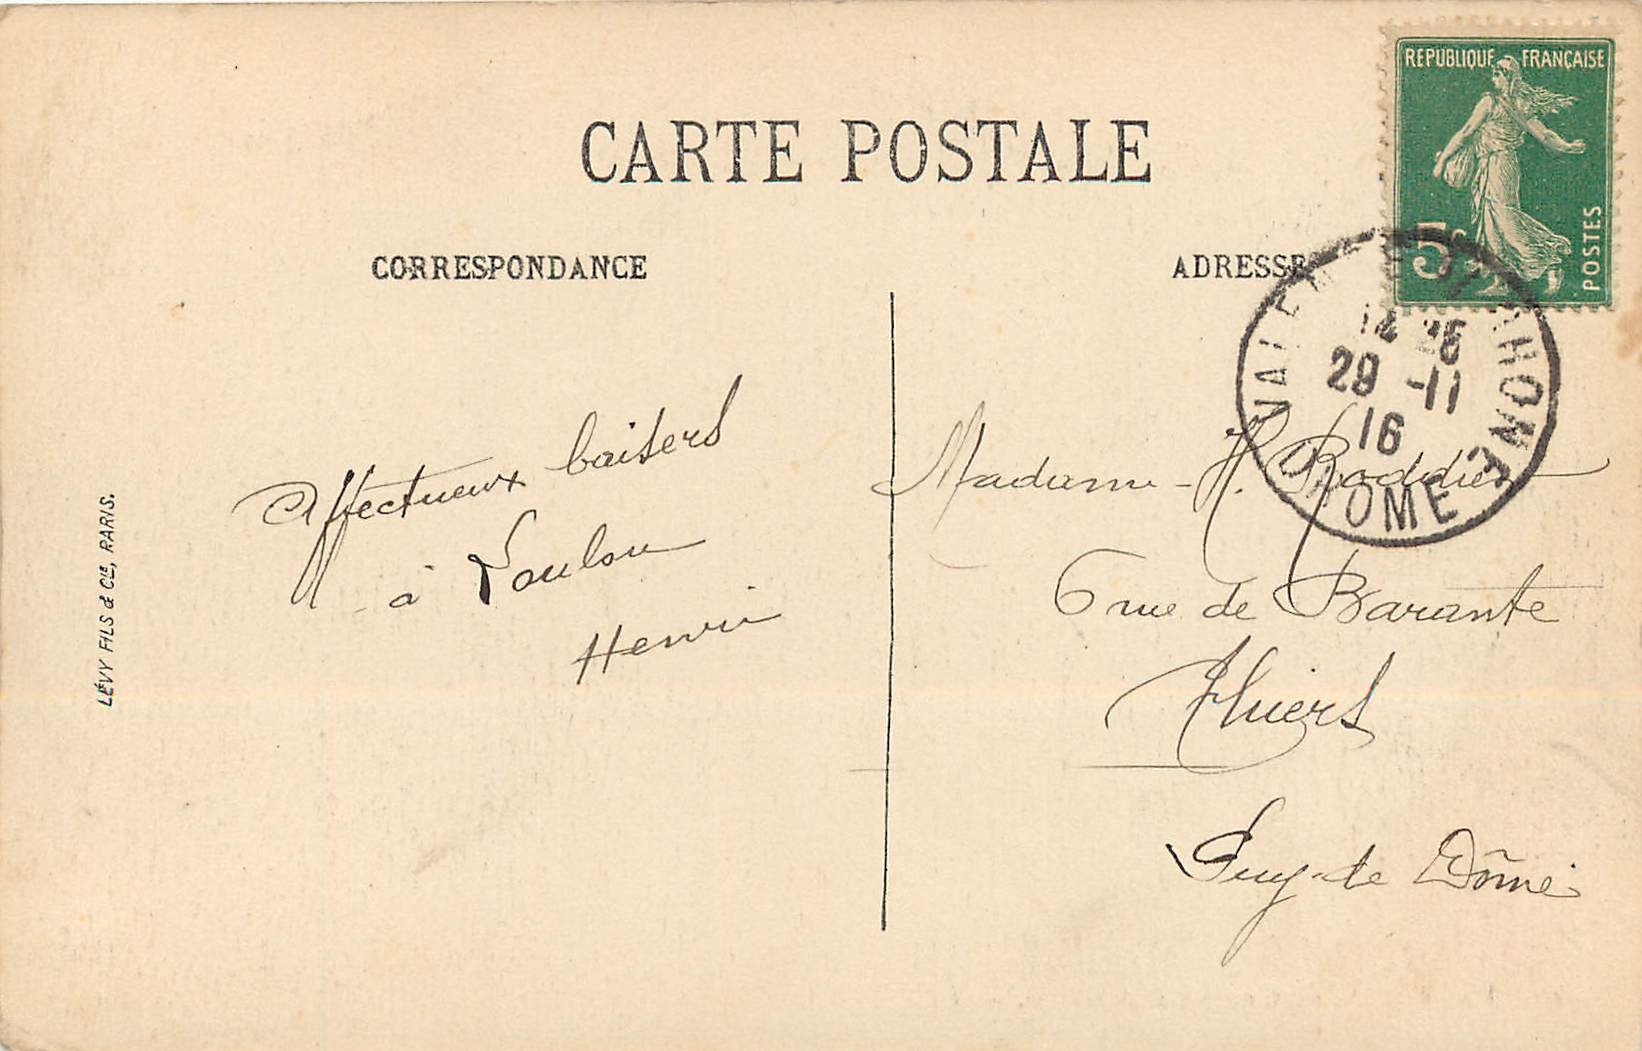 CARTE POSTALE
CORRESPONDANCE
ADRESSE
REPUBLIQUE FRANÇAISE
5c
POSTES
14
29 -11
16
RHONE
DROME
Affectueux baisers
à Loulou
Henri
Madame H. Roddier
6 rue de Barante
Thiers
Puy-de Dôme
LÉVY FILS & Cie, PARIS.